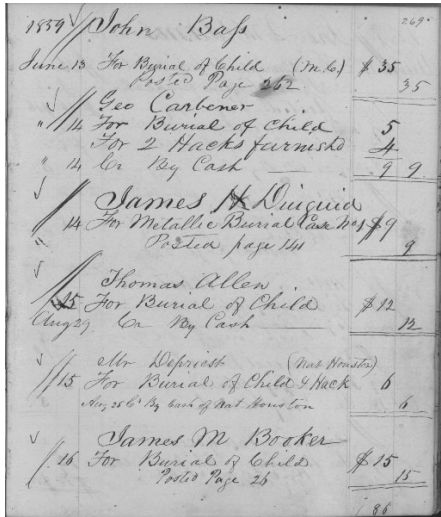 269.
1859 John Bass
June 13 For Burial of Child (M.C.) $ 35
Posted Page 262 35
Geo Carbener
" 14 For Burial of Child 5
For 2 Hacks furnished 4
" 14 Cr By Cash 9 9
James H Diuguid
14 For Metallic Burial Case No 1 $9
" Posted page 141 9
Thomas Allen
15 For Burial of Child $12
Aug 29 Cr By Cash 12
Mr Depriest (Nat Houston)
15 For Burial of Child & Hack 6
Aug 25 Cr By Cash of Nat Houston 6
James M Booker
16 For Burial of Child $15
Posted Page 26 15
86